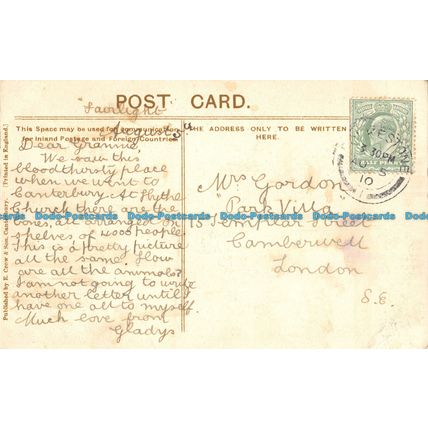 POST CARD.
Fairlight
August 3rd
This Space may be used for communication
for Inland Postage and Foreign Countries
THE ADDRESS ONLY TO BE WRITTEN
HERE.
Published by E. Crow & Son, Canterbury. [Printed in England.]
Dear Grannie,
We saw this
bloodthirsty place
when we went to
Canterbury. At Hythe
Church there are the
bones, all arranged on
shelves of 4000 people.
This is a pretty picture
all the same. How
are all the animals?
I am not going to write
another letter until I
have one all to myself.
Much love from
Gladys
Mrs Gordon
Park Villa
15 Templar Street
Camberwell
London
S.E.
HALF PENNY
FOLKESTONE
30 PM
AU 5
10
Dodo-Postcards Dodo-Postcards Dodo-Postcards Dodo-Postcards Dodo-Postcards